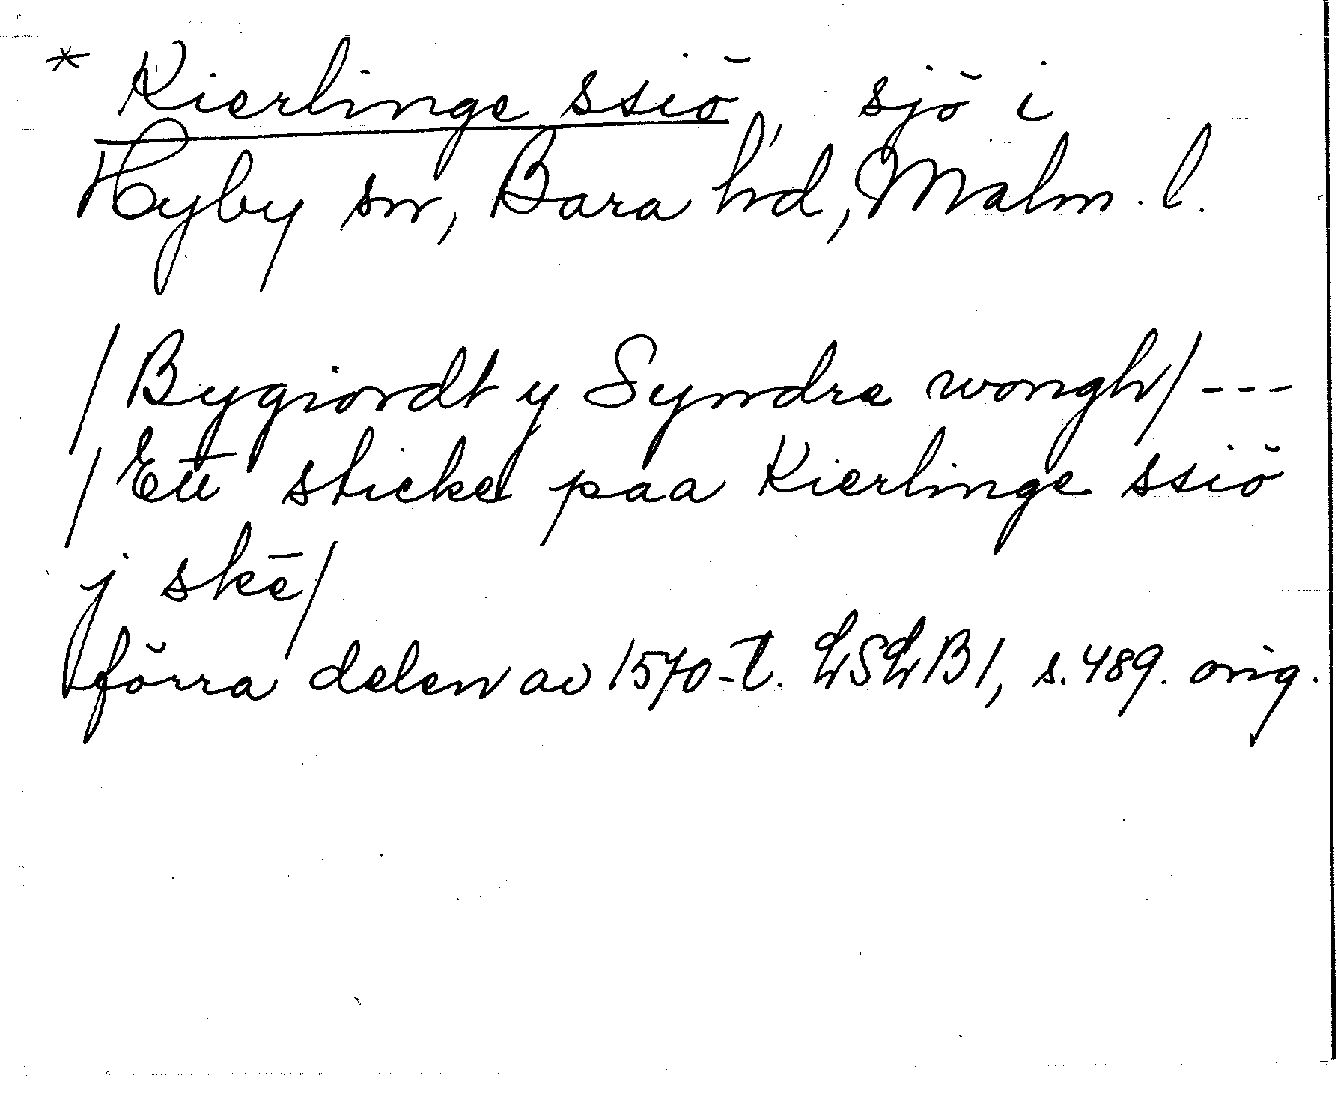 * Kierlinge ssiö, sjö i
Hyby sn, Bara hd, Malm. l.
/Bygiordt y Syndre wongh/ ---
/Ett sticke paa Kierlinge ssiö
j skē/
förra delen av 1570-t. LSLB1, s. 489. orig.